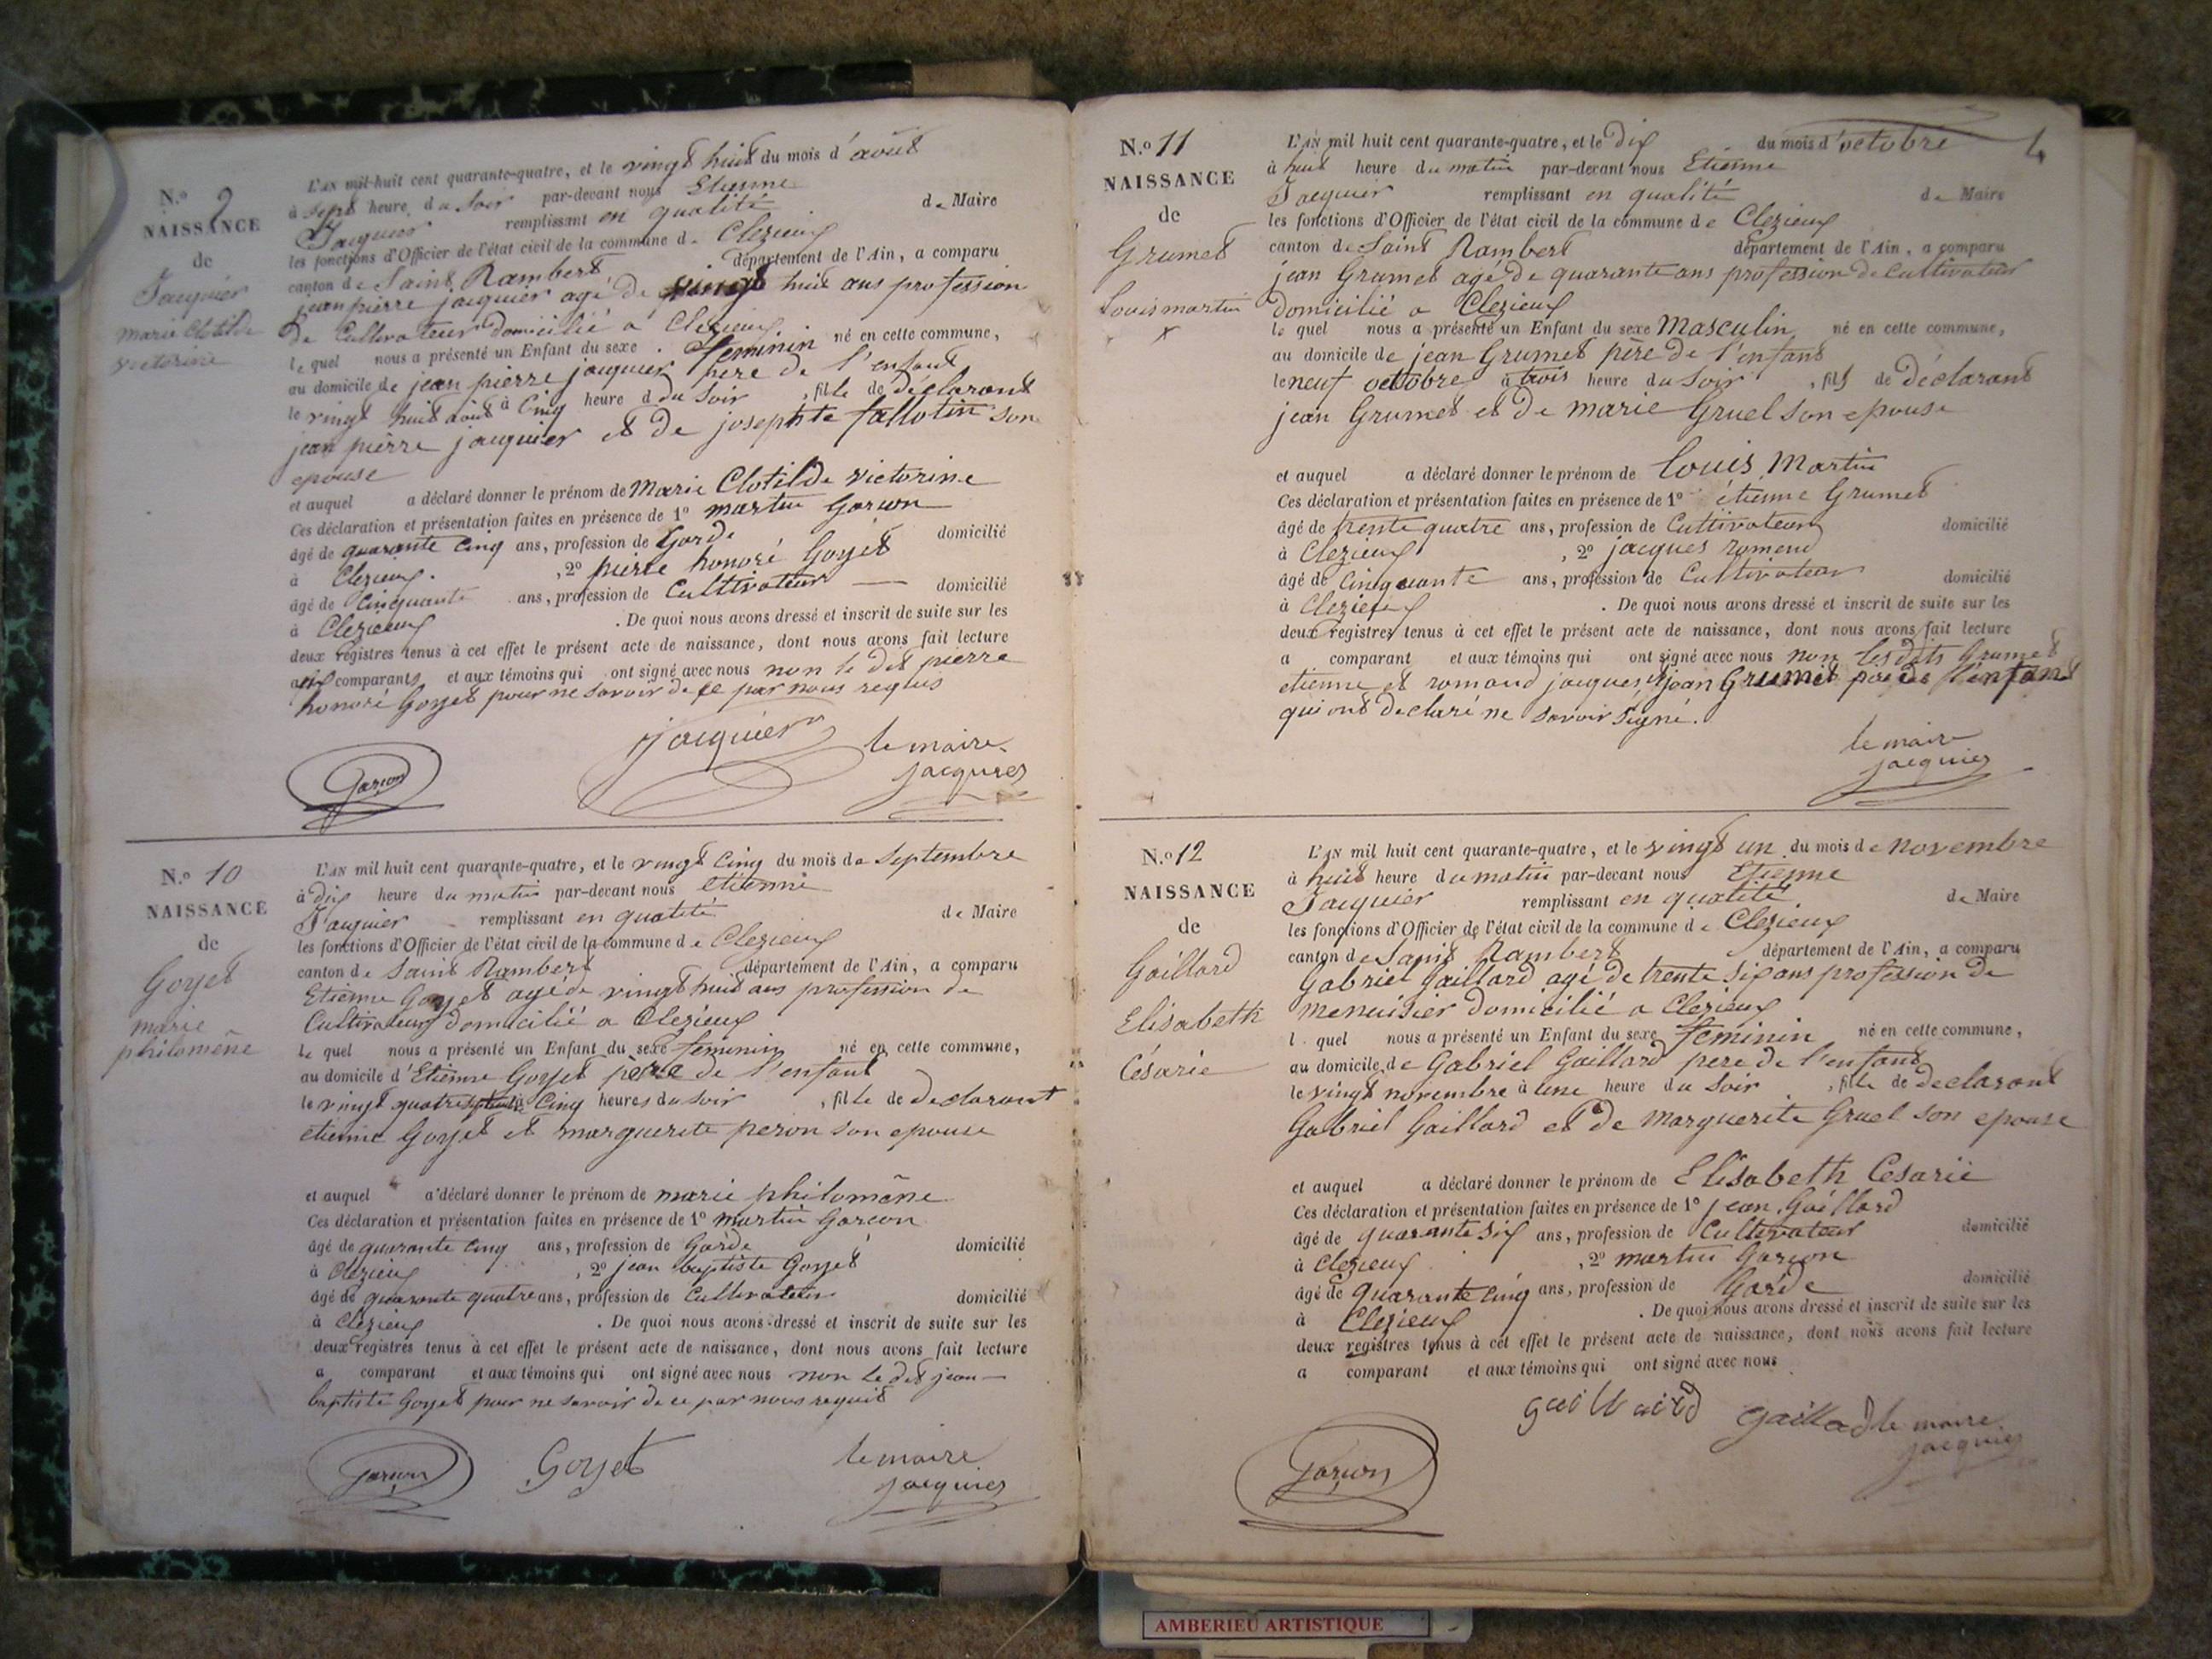 N.o 9
NAISSANCE
de
Jacquier
marie Clotilde
victorine
L'AN mil-huit cent quarante-quatre, et le vingt huit du mois d'août
à sept heure du soir par-devant nous Etienne
Jacquier remplissant en qualité de Maire
les fonctions d'Officier de l'état civil de la commune de Clezieux
canton de Saint Rambert département de l'Ain, a comparu
jean pierre jacquier agé de vingt huit ans profession
de Cultivateur domicilié a Clezieux.
le quel nous a présenté un Enfant du sexe feminin né en cette commune,
au domicile de jean pierre jacquier père de l'enfant
le vingt huit août à Cinq heure d du soir , fille de déclarant
jean pierre jacquier et de josephte fallotin son
epouse
et auquel a déclaré donner le prénom de Marie Clotilde victorine
Ces déclaration et présentation faites en présence de 1o martin Garcon
âgé de quarante cinq ans, profession de Garde domicilié
à Clezieux. , 2o pierre honoré Goyet
âgé de Cinquante ans, profession de Cultivateur domicilié
à Clezieux . De quoi nous avons dressé et inscrit de suite sur les
deux registres tenus à cet effet le présent acte de naissance, dont nous avons fait lecture
aux comparants et aux témoins qui ont signé avec nous non le dit pierre
honoré Goyet pour ne savoir de ce par nous requis
Garcon
jacquier
le maire
jacquier
N.o 10
NAISSANCE
de
Goyet
marie
philomène
L'AN mil huit cent quarante-quatre, et le vingt Cinq du mois de Septembre
à dix heure du matin par-devant nous etienne
Jacquier remplissant en qualité de Maire
les fonctions d'Officier de l'état civil de la commune de Clezieux
canton de Saint Rambert département de l'Ain, a comparu
Etienne Goyet agé de vingt huit ans profession de
Cultivateur domicilié a Clezieux
le quel nous a présenté un Enfant du sexe feminin né en cette commune,
au domicile d'Etienne Goyet père de l'enfant
le vingt quatre à Cinq heures du soir , fille de Declarant
etienne Goyet et marguerite peron son epouse
et auquel a déclaré donner le prénom de marie philomène
Ces déclaration et présentation faites en présence de 1o martin Garcon
âgé de quarante cinq ans, profession de Garde domicilié
à Clezieux , 2o jean baptiste Goyet
âgé de quarante quatre ans, profession de Cultivateur domicilié
à Clezieux . De quoi nous avons dressé et inscrit de suite sur les
deux registres tenus à cet effet le présent acte de naissance, dont nous avons fait lecture
a comparant et aux témoins qui ont signé avec nous non le dit jean
baptiste Goyet pour ne savoir de ce par nous requis
Garcon
Goyet
le maire
jacquier
4
N.o 11
NAISSANCE
de
Grumet
Louis martin
x
L'AN mil huit cent quarante-quatre, et le dix du mois d'octobre
à huit heure du matin par-devant nous Etienne
Jacquier remplissant en qualité de Maire
les fonctions d'Officier de l'état civil de la commune de Clezieux
canton de Saint Rambert département de l'Ain, a comparu
jean Grumet agé de quarante ans profession de Cultivateur
domicilié a Clezieux
le quel nous a présenté un Enfant du sexe Masculin né en cette commune,
au domicile de jean Grumet père de l'enfant
le neuf octobre à trois heure du soir , fils de déclarant
jean Grumet et de marie Gruel son epouse
et auquel a déclaré donner le prénom de Louis Martin
Ces déclaration et présentation faites en présence de 1o étienne Grumet
âgé de trente quatre ans, profession de Cultivateur domicilié
à Clezieux , 2o jacques romand
âgé de Cinquante ans, profession de Cultivateur domicilié
à Clezieux . De quoi nous avons dressé et inscrit de suite sur les
deux registres tenus à cet effet le présent acte de naissance, dont nous avons fait lecture
a comparant et aux témoins qui ont signé avec nous non les dits Grumet
etienne et romand jacques et jean Grumet père de l'enfant
qui ont declaré ne savoir signé.
le maire
jacquier
N.o 12
NAISSANCE
de
Gaillard
Elisabeth
Césarie
L'AN mil huit cent quarante-quatre, et le vingt un du mois de novembre
à huit heure du matin par-devant nous Etienne
Jacquier remplissant en qualité de Maire
les fonctions d'Officier de l'état civil de la commune de Clezieux
canton de Saint Rambert département de l'Ain, a comparu
Gabriel Gaillard agé de trente six ans profession de
menuisier domicilié a Clezieux
l. quel nous a présenté un Enfant du sexe feminin né en cette commune,
au domicile de Gabriel Gaillard pere de l'enfant
le vingt novembre à une heure du soir , fille de declarant
Gabriel Gaillard et de Marguerite Gruel son epouse
et auquel a déclaré donner le prénom de Elisabeth Cesarie
Ces déclaration et présentation faites en présence de 1o jean Gaillard
âgé de quarante six ans, profession de Cultivateur domicilié
à Clezieux , 2o martin Garcon
âgé de quarante cinq ans, profession de Garde domicilié
à Clezieux . De quoi nous avons dressé et inscrit de suite sur les
deux registres tenus à cet effet le présent acte de naissance, dont nous avons fait lecture
a comparant et aux témoins qui ont signé avec nous
gaillard
gaillad
le maire
jacquier
Garcon
AMBERIEU ARTISTIQUE